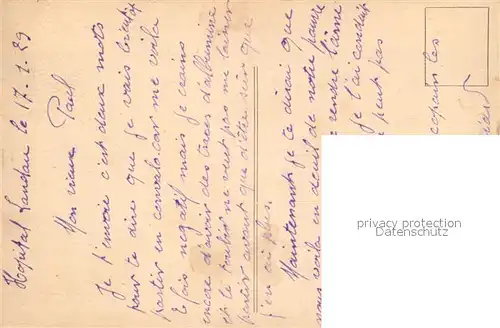 Hopital Landau le 17.1.29
Mon vieux Paul
Je t'envoie c'est deux mots
pour te dire que je vais bientôt
partir en convalo. car me voila
le fois negatif mais je crains
encore d'avoir des traces d'albumine
et le toubib ne veut pas me laisser
partir avant que d'être sûr que
j'en ai plus.
Maintenant je te dirai que
nous voila en deuil de notre pauvre
rendre l'âme
je l'ai conduit
peut pas
copain les
privacy protection
Datenschutz